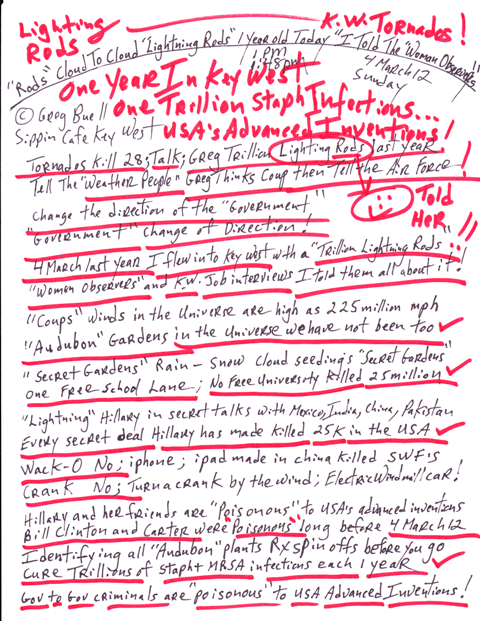 Lighting Rods
K.W. Tornados!
"Rods" Cloud To Cloud "Lightning Rods" 1 year old Today "I Told The Woman Observers"!!
1 pm
1:48pm
4 March 12
Sunday
One Year In Key West
© Greg Buell One Trillion Staph Infections...
Sippin Cafe Key West USA's Advanced Inventions!
Tornados Kill 28; Talk; Greg Trillion Lighting Rods last year
Tell The "Weather People" Greg Thinks Coup then Tell the Air Force!
Change the direction of the "Government"
"Government" Change of Direction!
Told Her!!
4 March last year I flew into Key West with a "Trillion Lightning Rods"...
"Women Observers" and K.W. Job interviews I told them all about it!
"Coups" Winds in the Universe are high as 225 million mph
"Audubon" Gardens in the Universe we have not been too
"Secret Gardens" Rain – Snow Cloud seeding's "Secret Gardens"
One Free School Lane; No Free University Killed 25 million
"Lightning" Hillary in secret talks with Mexico, India, China, Pakistan
Every secret deal Hillary has made killed 25K in the USA
Wack-O No; iphone; ipad made in china killed SWF's
Crank No; Turn a crank by the wind; Electric Windmill car!
Hillary and her friends are "Poisonous" to USA's advanced inventions
Bill Clinton and Carter were "Poisonous" long before 4 March 12
Identifying all "Audubon" plants Rx spin offs before you go
Cure Trillions of Staph + MRSA infections each 1 year
Gov to Gov criminals are "poisonous" to USA Advanced Inventions!